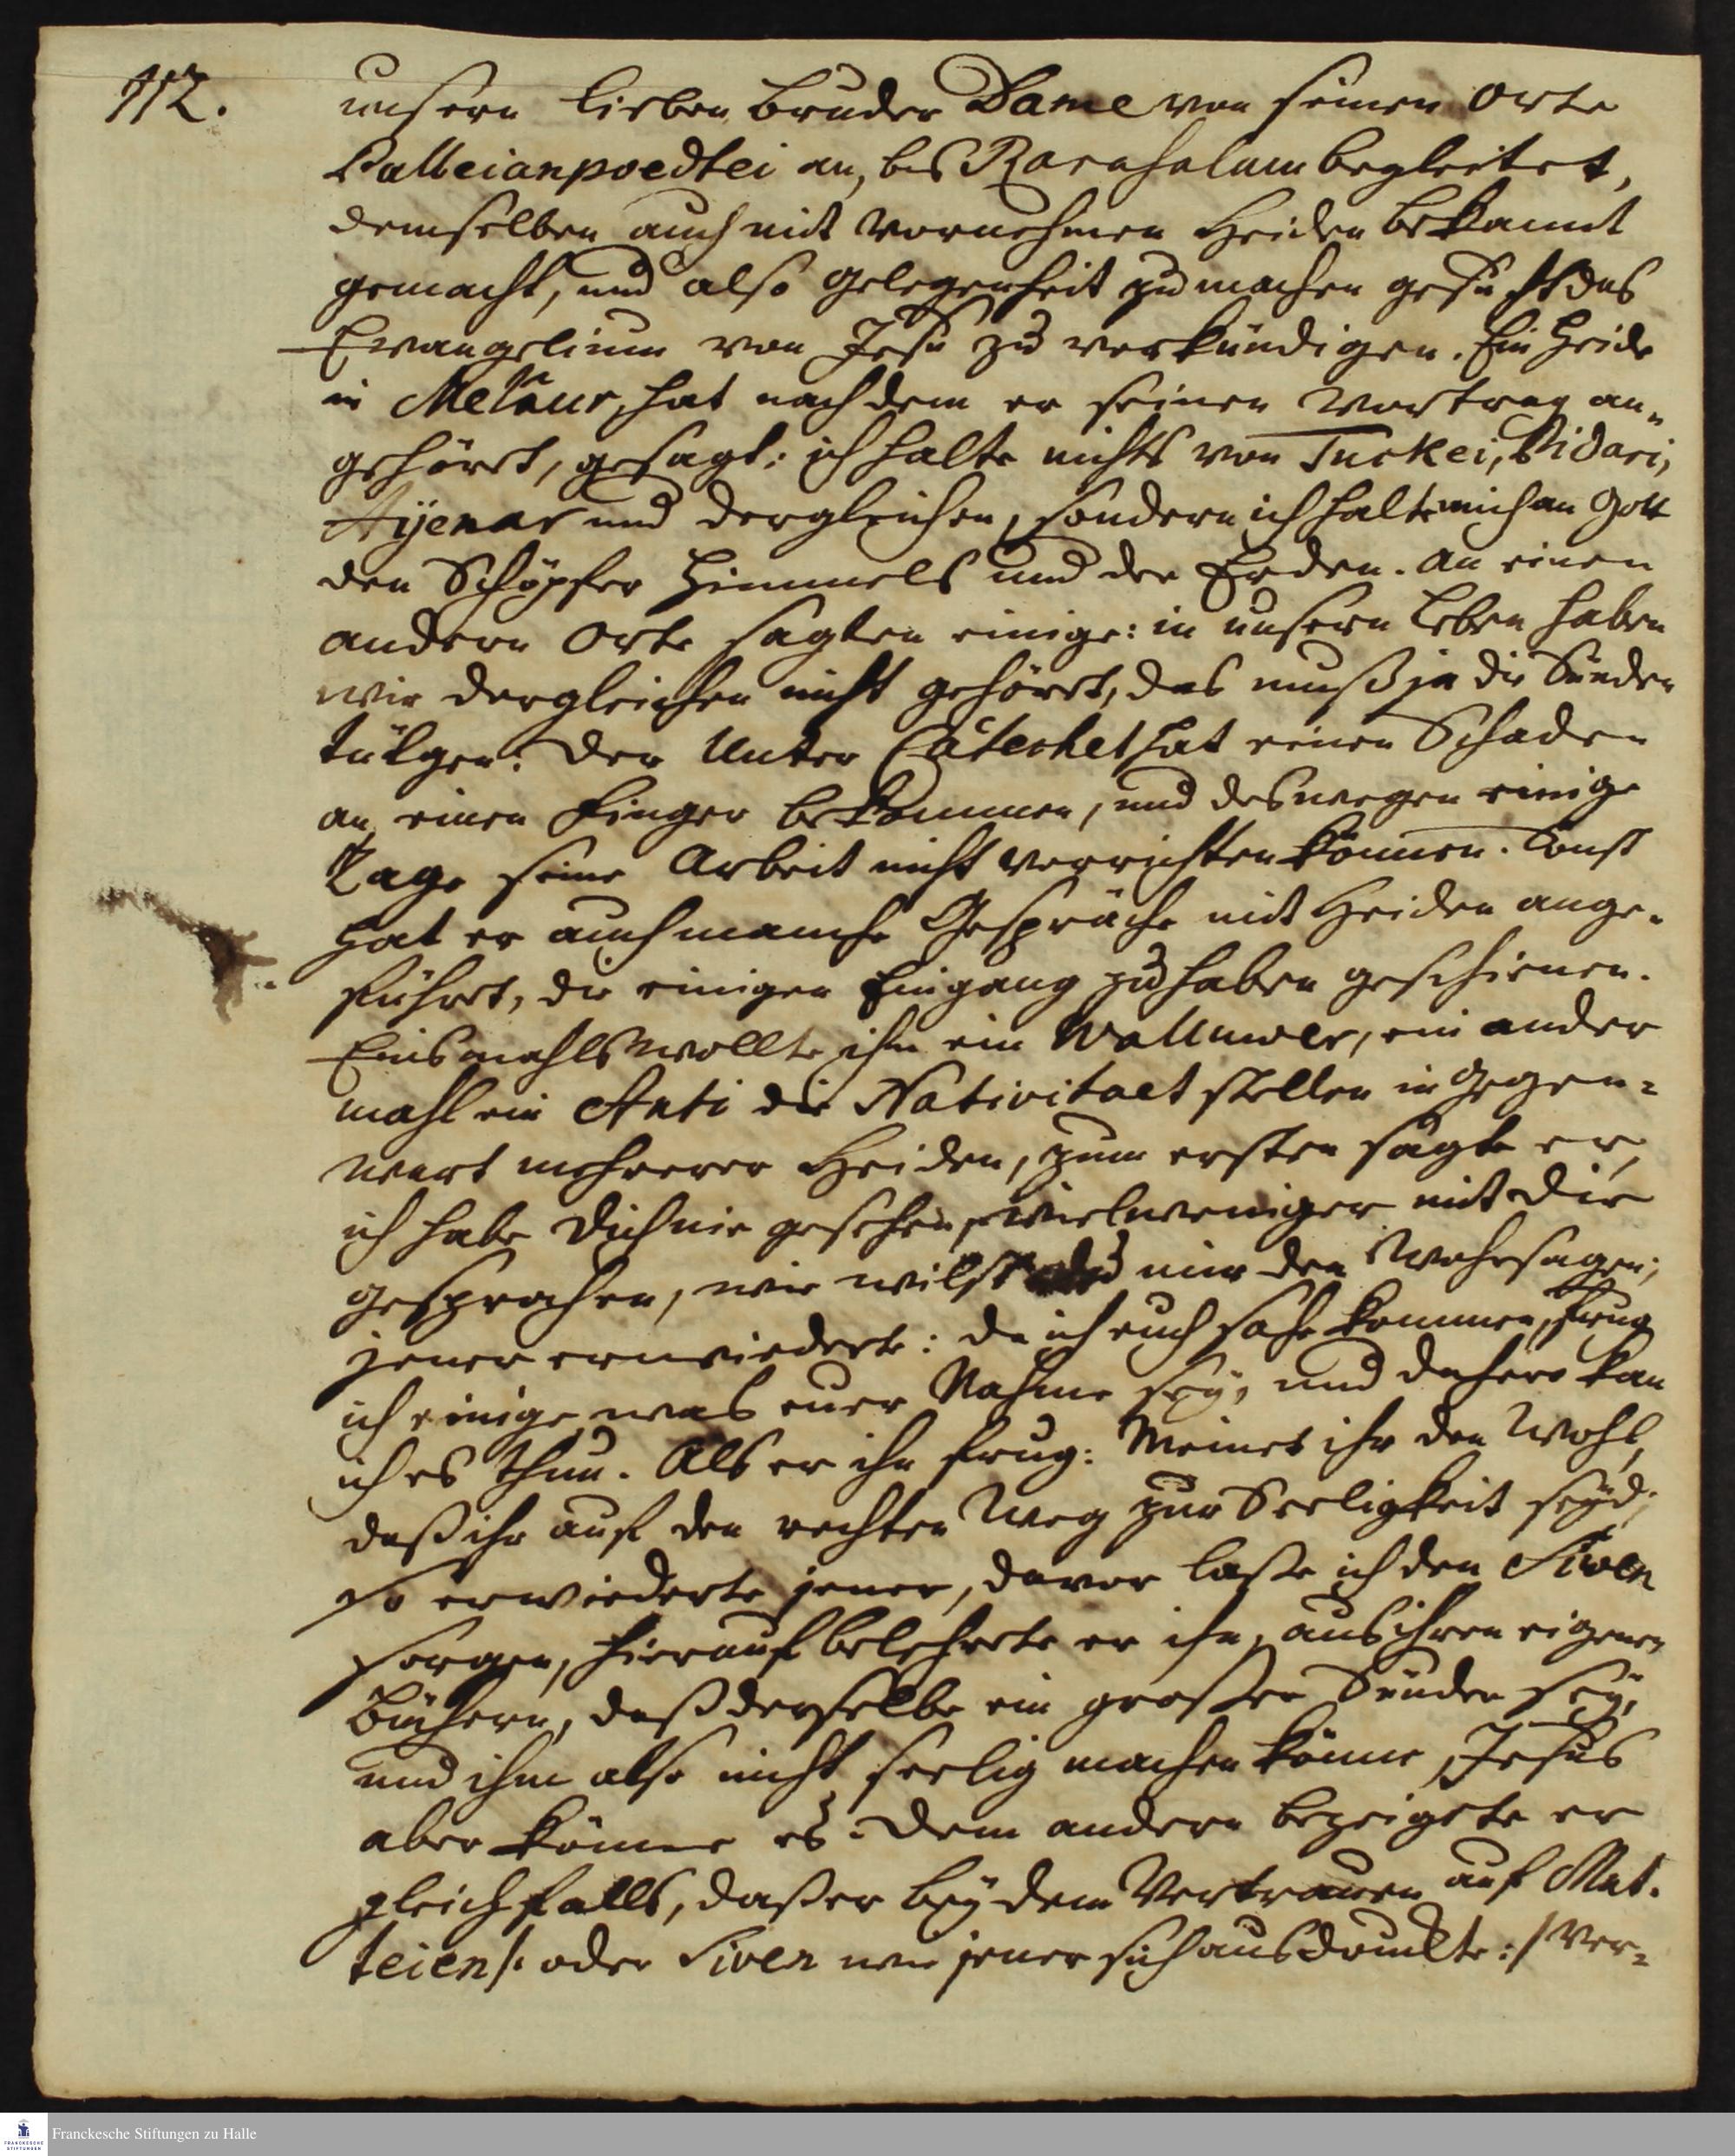 112.
unsern lieben Bruder Dame von seinen Orte
Palleianpoedtei an, bis Rarahalam begleitet,
demselben auch mit vornehmen Heiden bekannt
gemacht, und also gelegenheit zu machen gesucht das
Evangelium von Jesu zu verkündigen. Ein Heide
in Melaur, hat nach dem er seinen Vortrag an„
gehöret, gesagt: ich halte nichts von Tuckei, Pidari,
Aÿenar und dergleichen, sondern ich halte mich an Gott
den Schöpfer Himmels und der Erden. an einen
andern Orte sagten einige: in unsern Leben haben
wir dergleichen nicht gehöret, das muß ja die Sünden
tülgen. Der Unter Catechet hat einen Schaden
an einen Finger bekommen, und deswegen einige
Tage seine Arbeit nicht verrichten können. Sonst
hat er auch manche Gespräche mit Heiden ange-
führet, die einigen Eingang zu haben geschienen.
Einsmahls wollte ihn ein Walluwer, ein ander
mahl ein Anti die Nativitaet stellen in Gegen-
wart mehrerer Heiden, zum ersten sagte er,
ich habe dich nie gesehen, vielweniger mit dir
gesprochen, wie wilst du mir den Wahrsagen;
jener erwiederte: da ich euch sahe kommen, frug
ich einige was euer Nahme seÿ, und dahero kan
ich es thun. Als er ihn frug: Meinet ihr den wohl,
daß ihr auf den rechten Weg zur Seeligkeit seÿd;
so erwiederte jener, davor laße ich den Siwen
sorgen, hierauf belehrete er ihn, aus ihren eigenen
Büchern, daß derselbe ein großer Sünder seÿ,
und ihm also nicht seelig machen könne, Jesus
aber könne es. Dem andern bezeigete er
gleichfalls, daß er beÿ dem Vertrauen auf Mut.
teien /: oder Siven wie jener sich ausdruckte :/ Ver-
Franckesche Stiftungen zu Halle